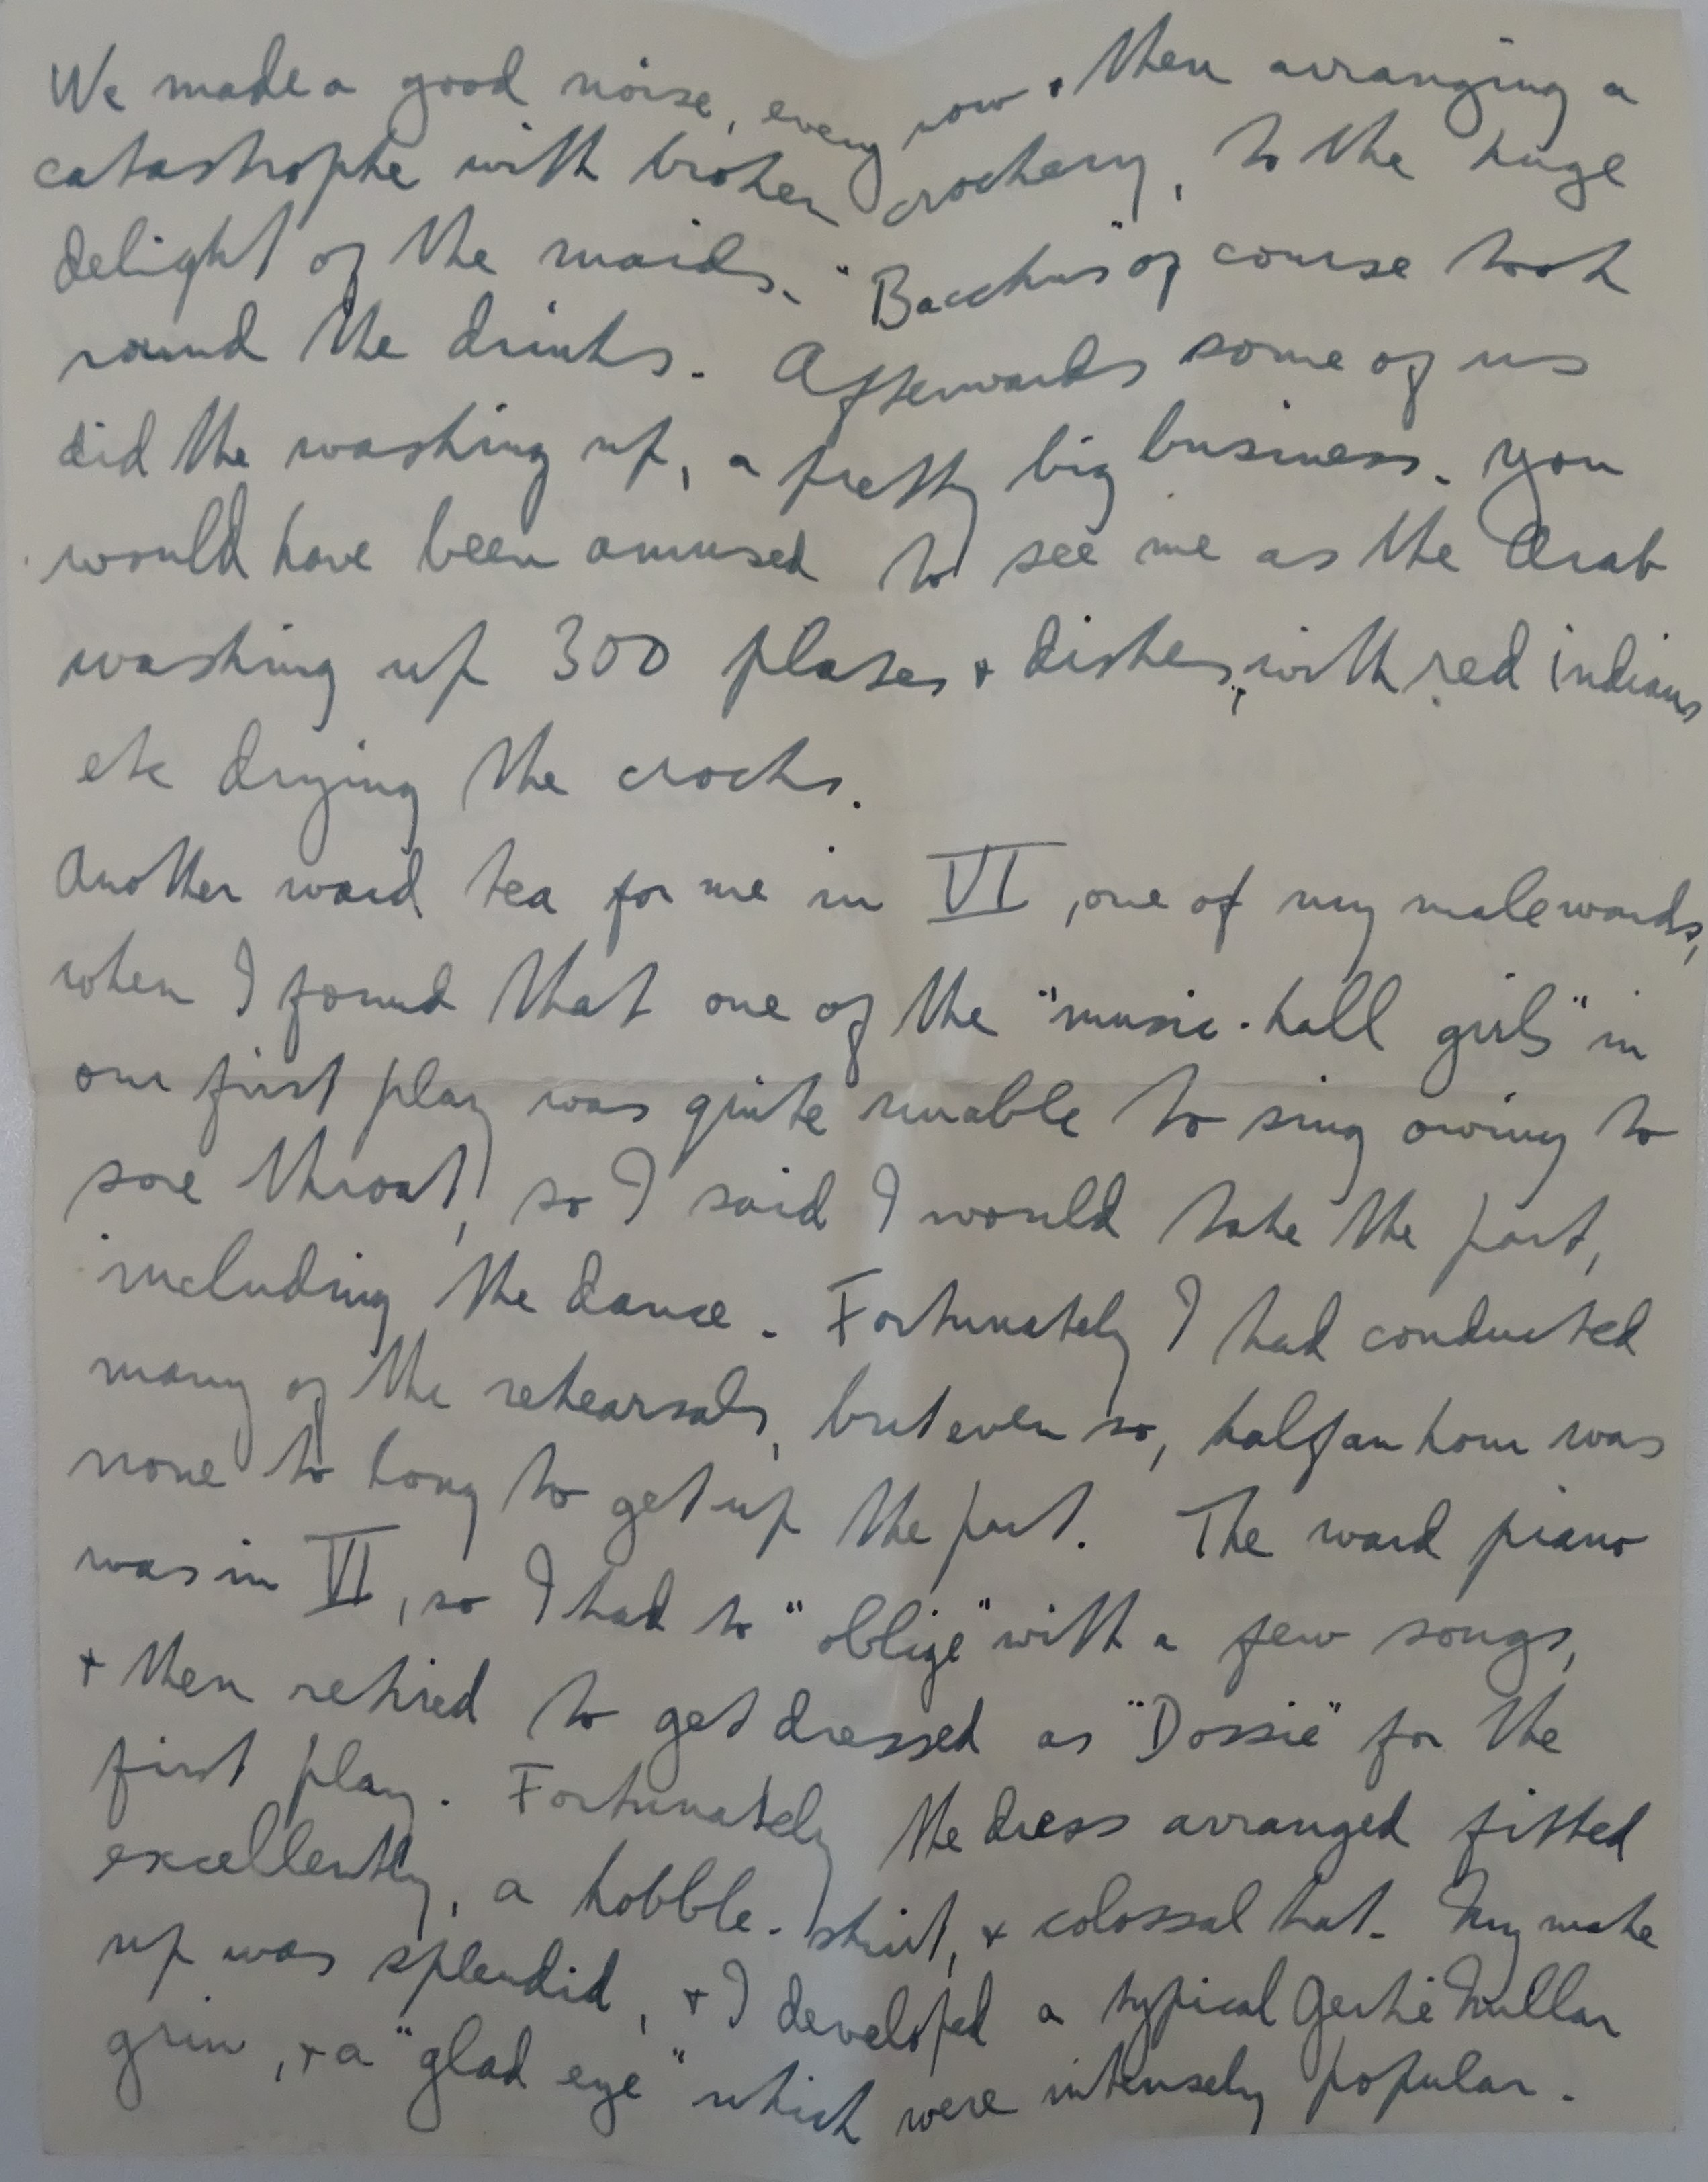 We made a good noise, every now + then arranging a
catastrophe with broken crockery, to the huge
delight of the maids. "Bacchus" of course took
round the drinks. Afterwards some of us
did the washing up, a pretty big business. You
would have been amused to see me as the Arab
washing up 300 plates + dishes, with red indians
etc drying the crocks.
Another ward tea for me in VI, one of my male wards,
when I found that one of the "music-hall girls" in
our first play was quite unable to sing owing to
sore throat, so I said I would take the part,
including the dance. Fortunately I had conducted
many of the rehearsals, but even so, half an hour was
none to long to get up the part. The ward piano
was in VI, so I had to "oblige" with a few songs,
+ then retired to get dressed as "Dossie" for the
first play. Fortunately the dress arranged fitted
excellently, a hobble-skirt, + colossal hat. My make
up was splendid, + I developed a typical Gertie Millar
grin, + a "glad eye" which were intensely popular.